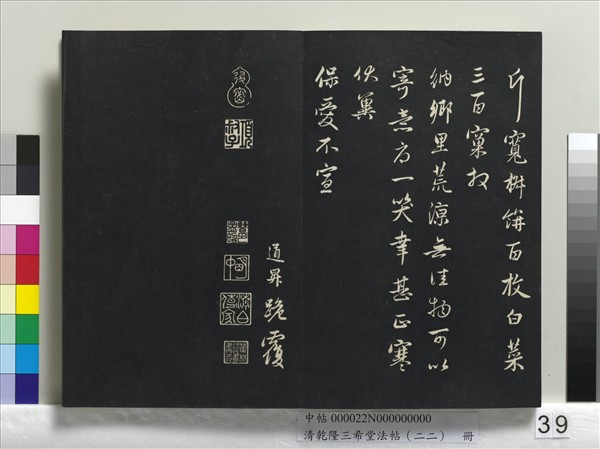 斤寬椕餅百枚白菜
三百窠拜
納鄉里荒涼無佳物可以
寄意為一笑幸甚正寒
伏冀
保愛不宣
道昇跪覆
中帖 000022N000000000
清乾隆三希堂法帖（二二） 冊
39